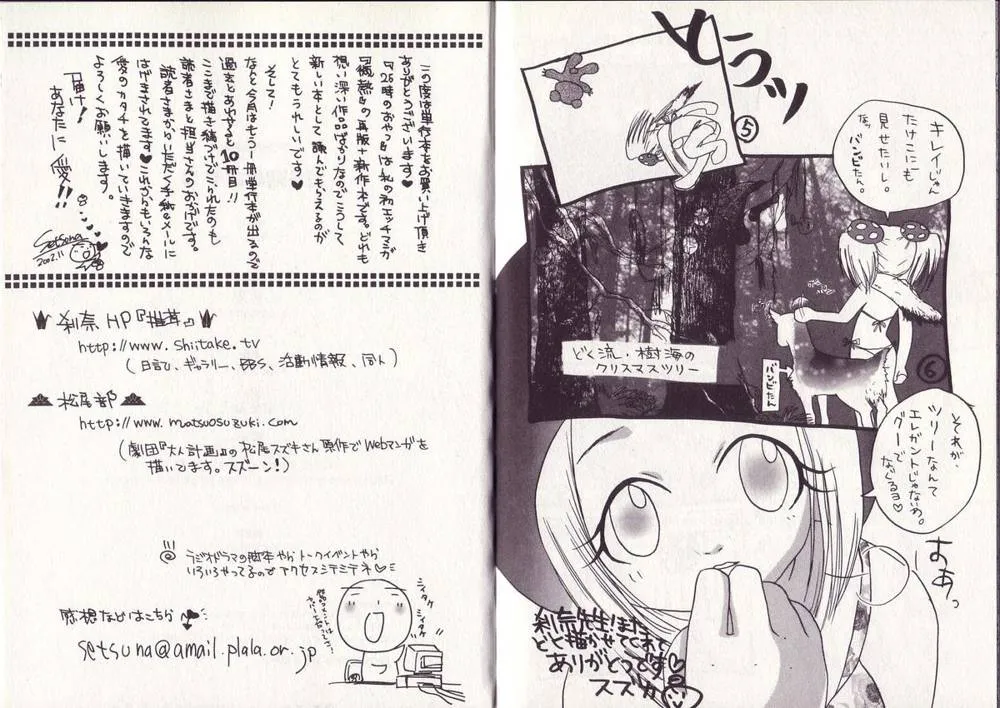 とうッ
⑤
キレイじゃ
たけこにも
見せたいし。
ね、バンビたん。
どく流・樹海の
クリスマスツリー
バンビたん
⑥
それが、
ツリーなんて
エレガントじゃないわ。
グーで
なぐるヨ♡
おあっ
刹奈先生!また
どく描かせてくれて
ありがとうです♡
スズカ
この度は単行本をお買い上げ頂き
ありがとうございます♡
『26時のおやつ』は私の初エッチマンガ
『 』の再版+新作本です。どれも
想い深い作品ばかりなのでこうして
新しい本として読んでもらえるのが
とてもうれしいです♥
そして!
なんと今月はもう一冊単行本が出るので
過去とあわせると10冊目!!
ここまで描き続けてこられたのも
読者さまと担当さんのおかげです。
読者さまからいただく手紙やメールに
はげまされてます♥これからもいろんな
愛のカタチを描いていきますので
よろしくお願いします。
届け!
あなたに愛!!
Setsuna
2002.11
刹奈 HP『椎茸』
http://www.shiitake.tv
(日記、ギャラリー、BBS、活動情報、同人)
松尾部
http://www.matsuosuzuki.com
(劇団『大人計画』の松尾スズキさん原作でWebマンガを
描いてます。スズーン!)
ラジオドラマの脚本やらトークイベントやら
いろいろやってるのでアクセスシテミテネ♡
シイタケ
シイタケ
感想などはこちら
setsuna@amail.plala.or.jp